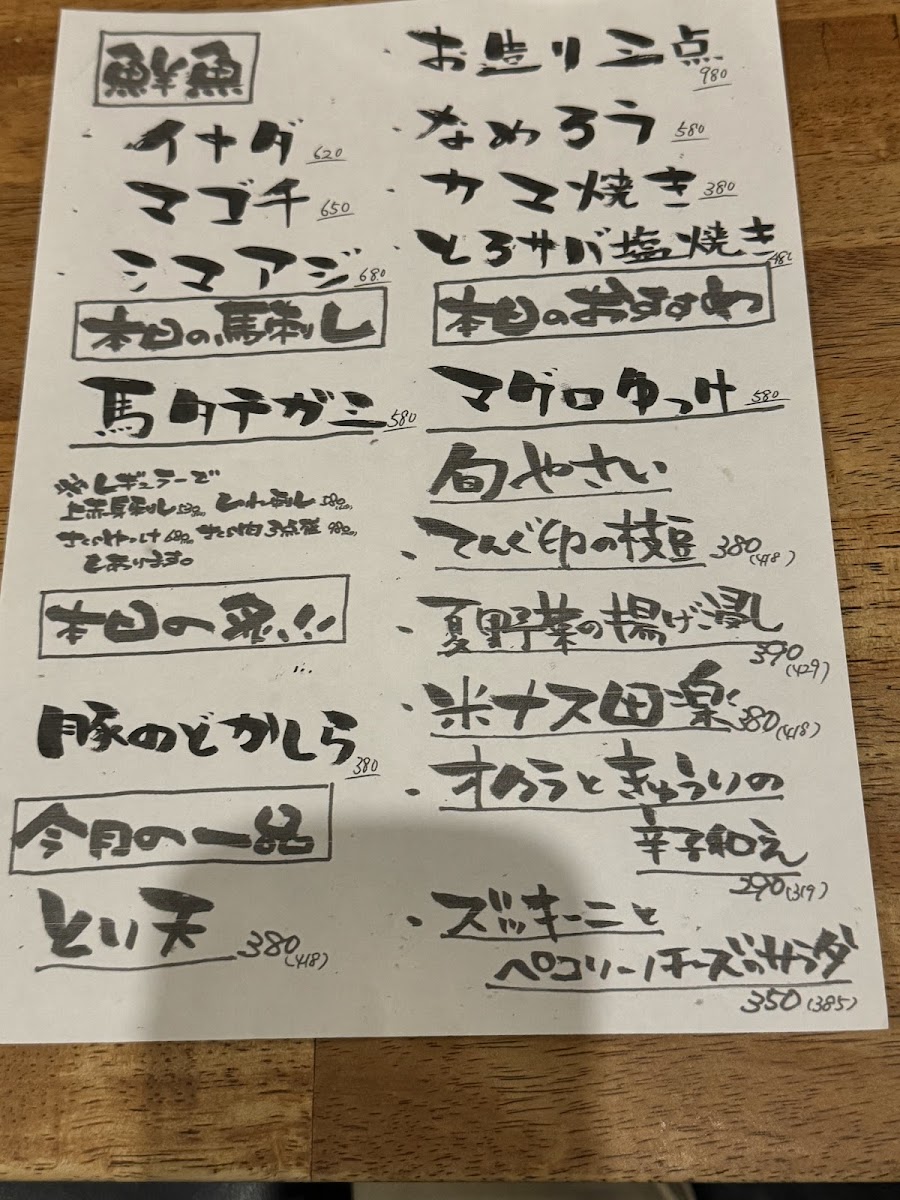 鮮魚
イナダ 620
マゴチ 650
シマアジ 680
本日の馬刺し
馬タテガミ 580
※レギュラーで
上赤馬刺し
もあります。
本日の
豚のどかしら 380
今月の一品
とり天 380(418)
お造り三点 980
なめろう 580
カマ焼き 380
とろサバ塩焼き
本日のおすすめ
マグロゆっけ 580
旬やさい
・てんぐ印の枝豆 380(418)
・夏野菜の揚げ浸し
390(429)
・米ナス田楽 380(418)
・オクラときゅうりの
辛子和え
290(319)
・ズッキーニと
ペコリーノチーズのサラダ
350(385)